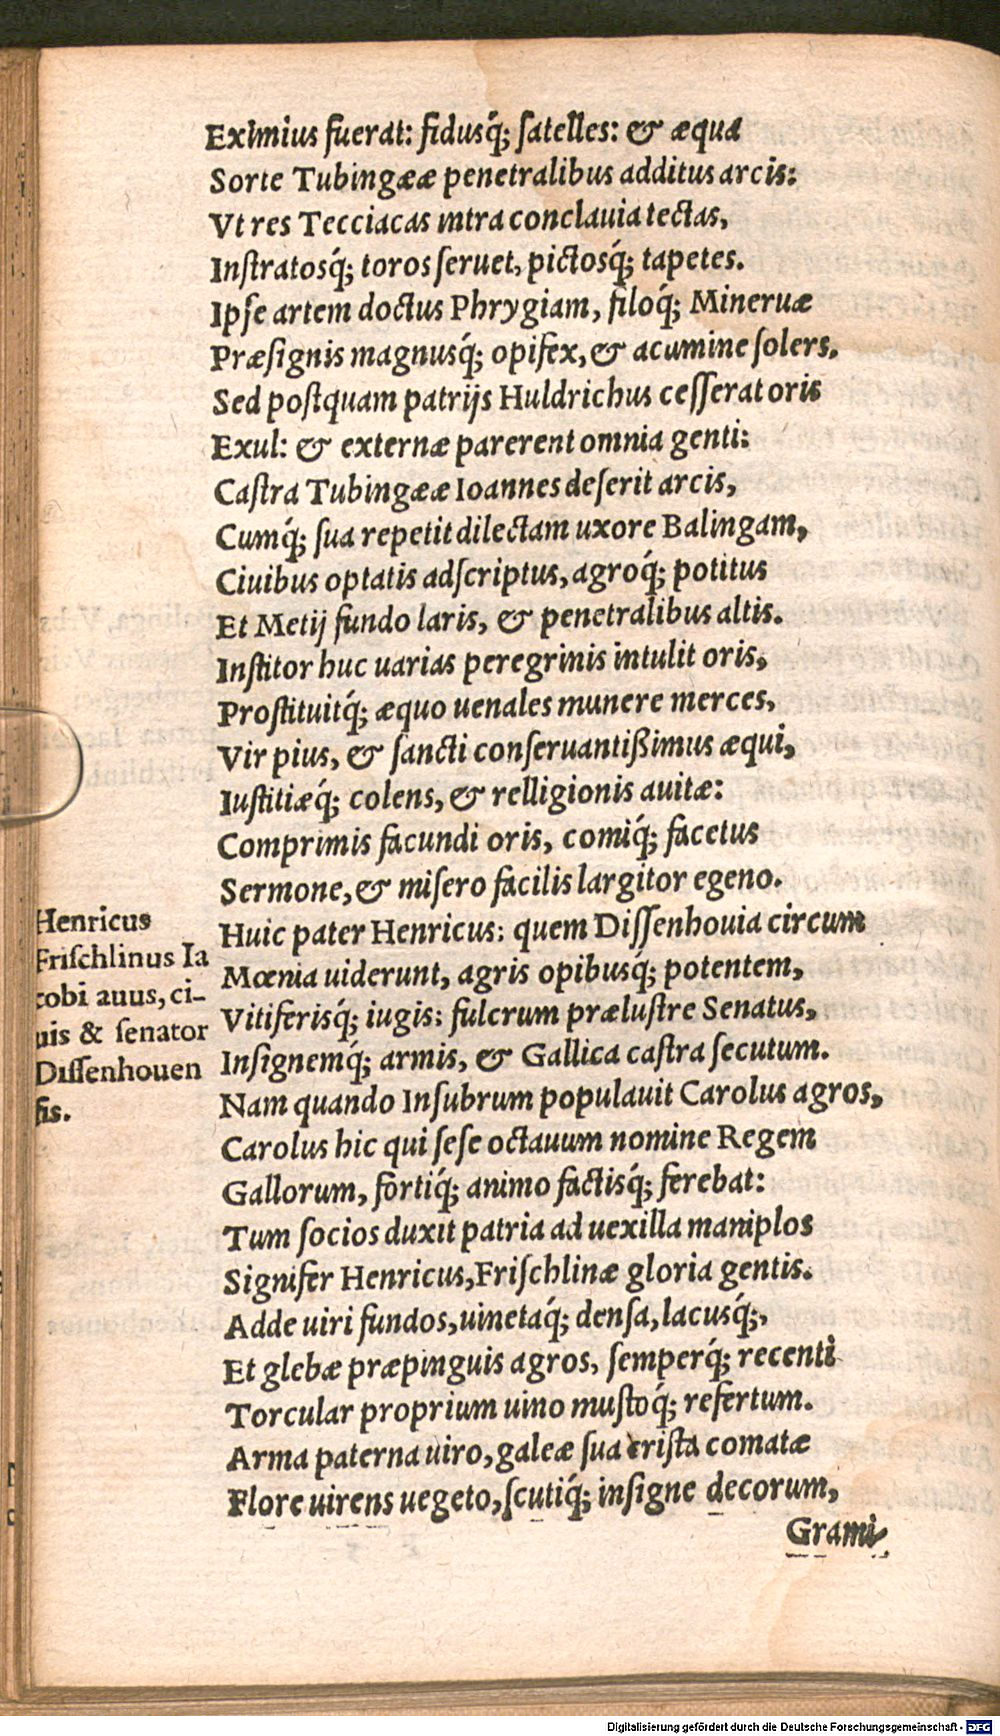 Eximius fuerat: fidusq́; ſatelles: & æqua
Sorte Tubingææ penetralibus additus arcis:
Vt res Tecciacas intra conclauia tectas,
Inſtratosq́; toros ſeruet, pictosq́; tapetes.
Ipſe artem doctus Phrygiam, filoq́; Mineruæ
Præſignis magnusq́; opifex, & acumine ſolers.
Sed poſtquam patrijs Huldrichus ceſſerat oris
Exul: & externæ parerent omnia genti:
Caſtra Tubingææ Ioannes deſerit arcis,
Cumq́; ſua repetit dilectam uxore Balingam,
Ciuibus optatis adſcriptus, agroq́; potitus
Et Metij fundo laris, & penetralibus altis.
Inſtitor huc uarias peregrinis intulit oris,
Proſtituitq́; æquo uenales munere merces,
Vir pius, & ſancti conſeruantißimus æqui,
Iuſtitiæq́; colens, & relligionis auitæ:
Comprimis facundi oris, comiq́; facetus
Sermone, & miſero facilis largitor egeno.
Huic pater Henricus: quem Diſſenhouia circum
Mœnia uiderunt, agris opibusq́; potentem,
Vitiferisq́; iugis: fulcrum præluſtre Senatus,
Inſignemq́; armis, & Gallica caſtra ſecutum.
Nam quando Inſubrum populauit Carolus agros,
Carolus hic qui ſeſe octauum nomine Regem
Gallorum, fortiq́; animo factisq́; ferebat:
Tum ſocios duxit patria ad uexilla maniplos
Signifer Henricus, Friſchlinæ gloria gentis.
Adde uiri fundos, uinetaq́; denſa, lacusq́;,
Et glebæ præpinguis agros, ſemperq́; recenti
Torcular proprium uino muſtoq́; refertum.
Arma paterna uiro, galeæ ſua criſta comatæ
Flore uirens uegeto, ſcutiq́; inſigne decorum,
Grami-
Henricus
Friſchlinus Ia
cobi auus, ci-
uis & ſenator
Diſſenhouen
ſis.
Digitalisierung gefördert durch die Deutsche Forschungsgemeinschaft - DFG